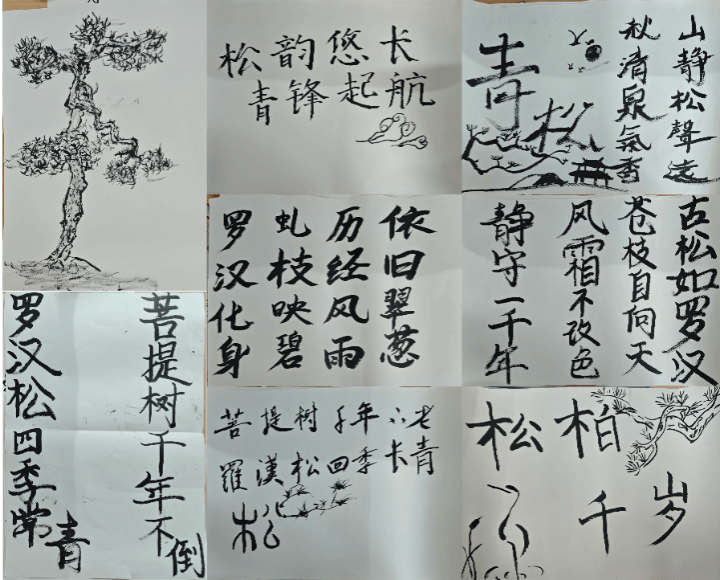 松韵悠长
青锋起航
山静松聲遠
秋清泉氣香
青松
罗汉化身
虬枝映碧
历经风雨
依旧翠葱
古松如罗汉
苍枝自向天
风霜不改色
静守一千年
菩提树千年不倒
罗汉松四季常青
菩提树千年不老
羅漢松四季长青
松
松柏
千岁